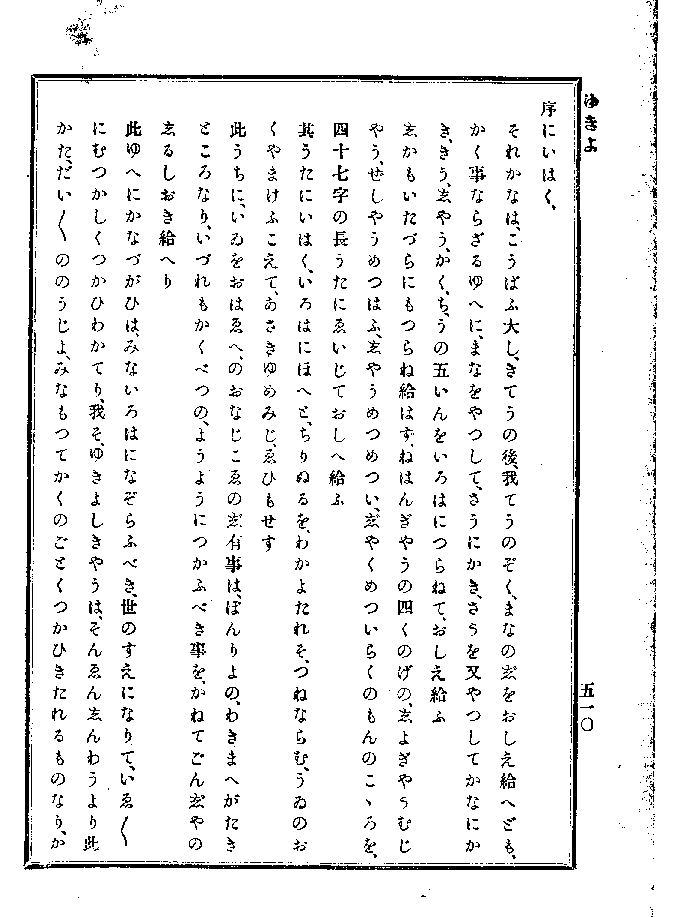 ゆきよ
五一〇
序にいはく、
それかなは、こうぼふ大し、きてうの後、我てうのぞく、まなの志をおしえ給へども、
かく事ならざるゆへに、まなをやつして、さうにかき、さうを又やつしてかなにか
き、きう、志やう、かく、ち、うの五いんをいろはにつらねて、おしえ給ふ
志かもいたづらにもつらね給はず、ねはんぎやうの四くのげの、志よぎやうむじ
やう、ぜしやうめつはふ、志やうめつめつい、志やくめついらくのもんのこゝろを、
四十七字の長うたにゑいじておしへ給ふ
其うたにいはく、いろはにほへと、ちりぬるを、わかよたれそ、つねならむ、うゐのお
くやまけふこえて、あさきゆめみじ、ゑひもせす
此うちに、いゐをおはゑへ、のおなじこゑの志有事は、ぼんりよの、わきまへがたき
ところなり、いづれもかくべつの、ようようにつかふべき事を、かねてごん志やの
志るしおき給へり
此ゆへにかなづがひは、みないろはになぞらふべき、世のすえになりて、いゑ〳〵
にむつかしくつかひわかてり、我そ、ゆきよしきやうは、そんゑん志んわうより此
かた、だい〳〵ののうじよ、みなもつてかくのごとくつかひきたれるものなり、か